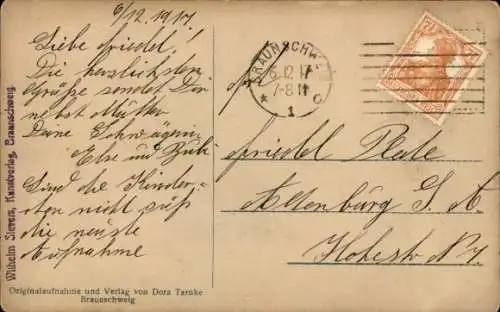 6/12.1917.
Liebe Friedel!
Die herzlichsten
Grüße sendet Dir
nebst Mutter
Deine Schwägerin
Else und Bubi
Sind die Kinder-
chen nicht süß
die neuste
Aufnahme
Wilhelm Sievers, Kunstverlag, Braunschweig.
Originalaufnahme und Verlag von Dora Tarnke
Braunschweig
BRAUNSCHWEIG
6.12.17
7-8 N
* 1 c
Friedel Plate
Altenburg S. A.
Hohestr N